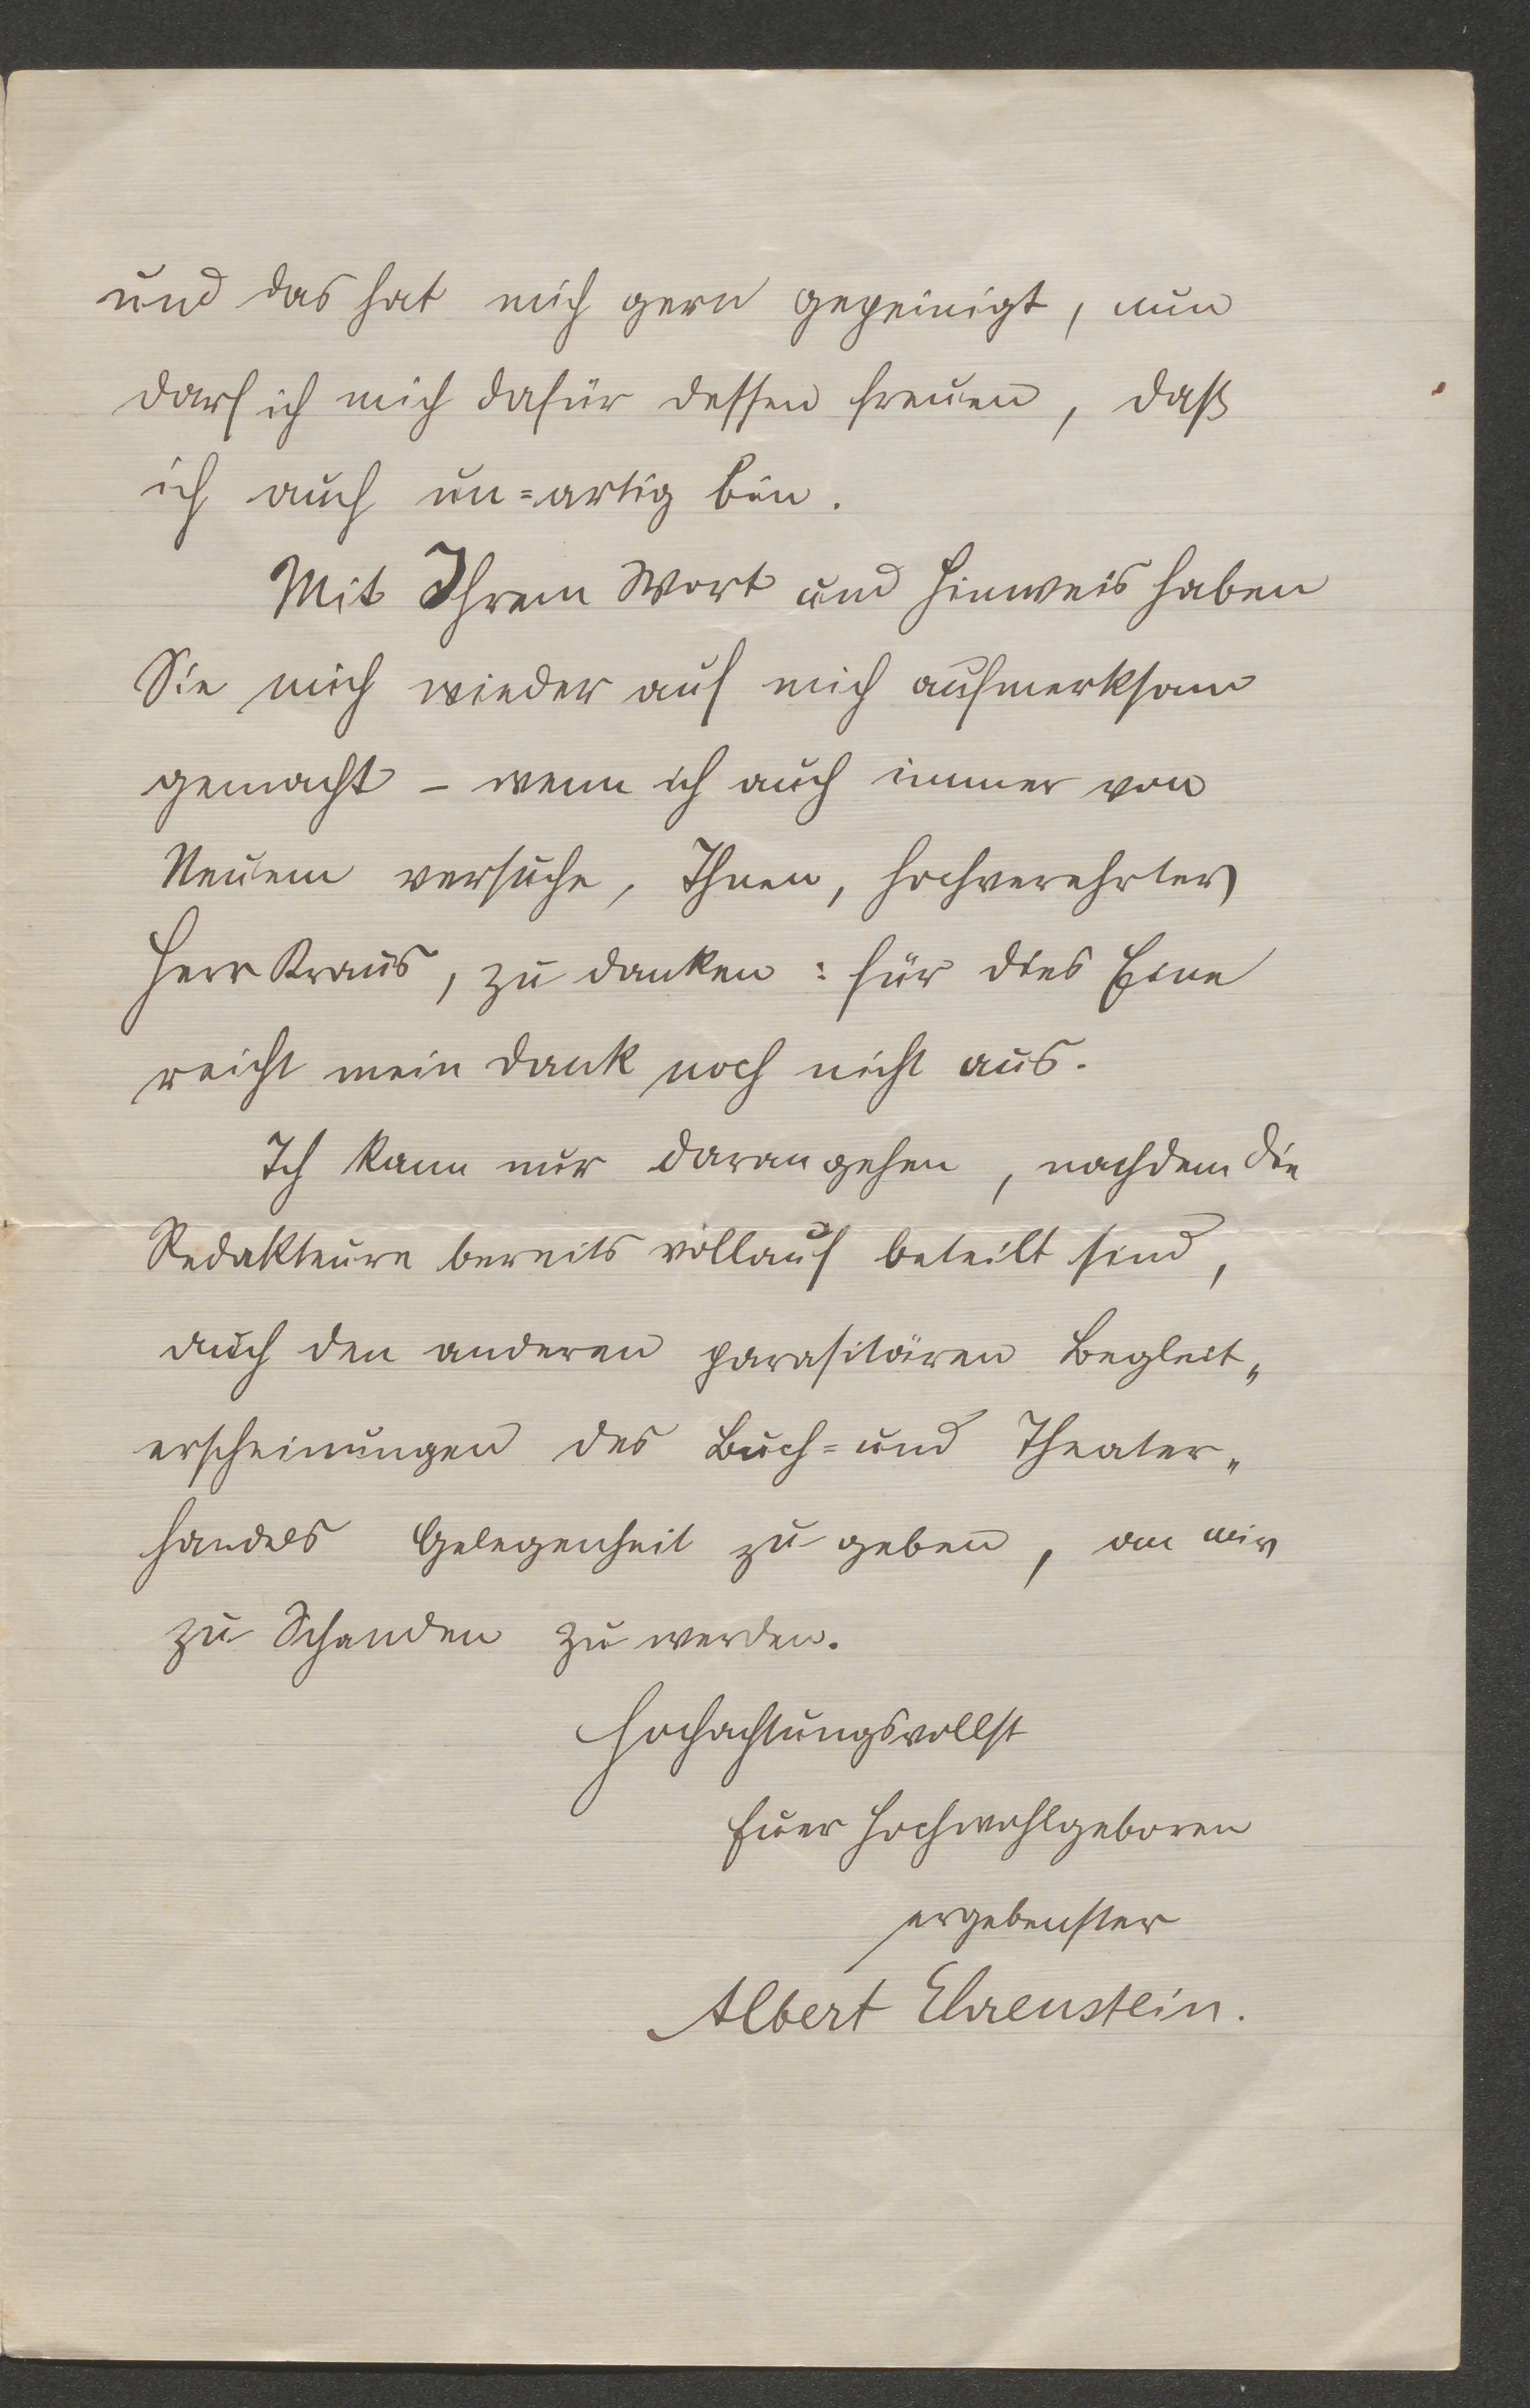 und das hat mich gern gepeinigt, nun
darf ich mich dafür dessen freuen, daß
ich auch un=artig bin.
Mit Ihrem Wort und Hinweis haben
Sie mich wieder auf mich aufmerksam
gemacht – wenn ich auch immer von
Neuem versuche, Ihnen, hochverehrter
Herr Kraus, zu danken: für dies Eine
reicht mein Dank noch nicht aus.
Ich kann nur daran gehen, nachdem die
Redakteure bereits vollauf beteilt sind,
auch den anderen parasitären Begleit„
erscheinungen des Buch= und Theater„
handels Gelegenheit zu geben, an mir
zu Schanden zu werden.
Hochachtungsvollst
Euer Hochwohlgeboren
ergebenster
Albert Ehrenstein.